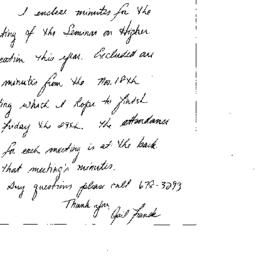 I enclose minutes for the
ting of the Seminar on Higher
cation this year. Excluded are
minutes from the Nov. 18th
ting which I hope to finish
Friday the 29th. The attendance
for each meeting is at the back
that meeting's minutes.
Any questions please call 672-3293
Thank you
Gail Franck